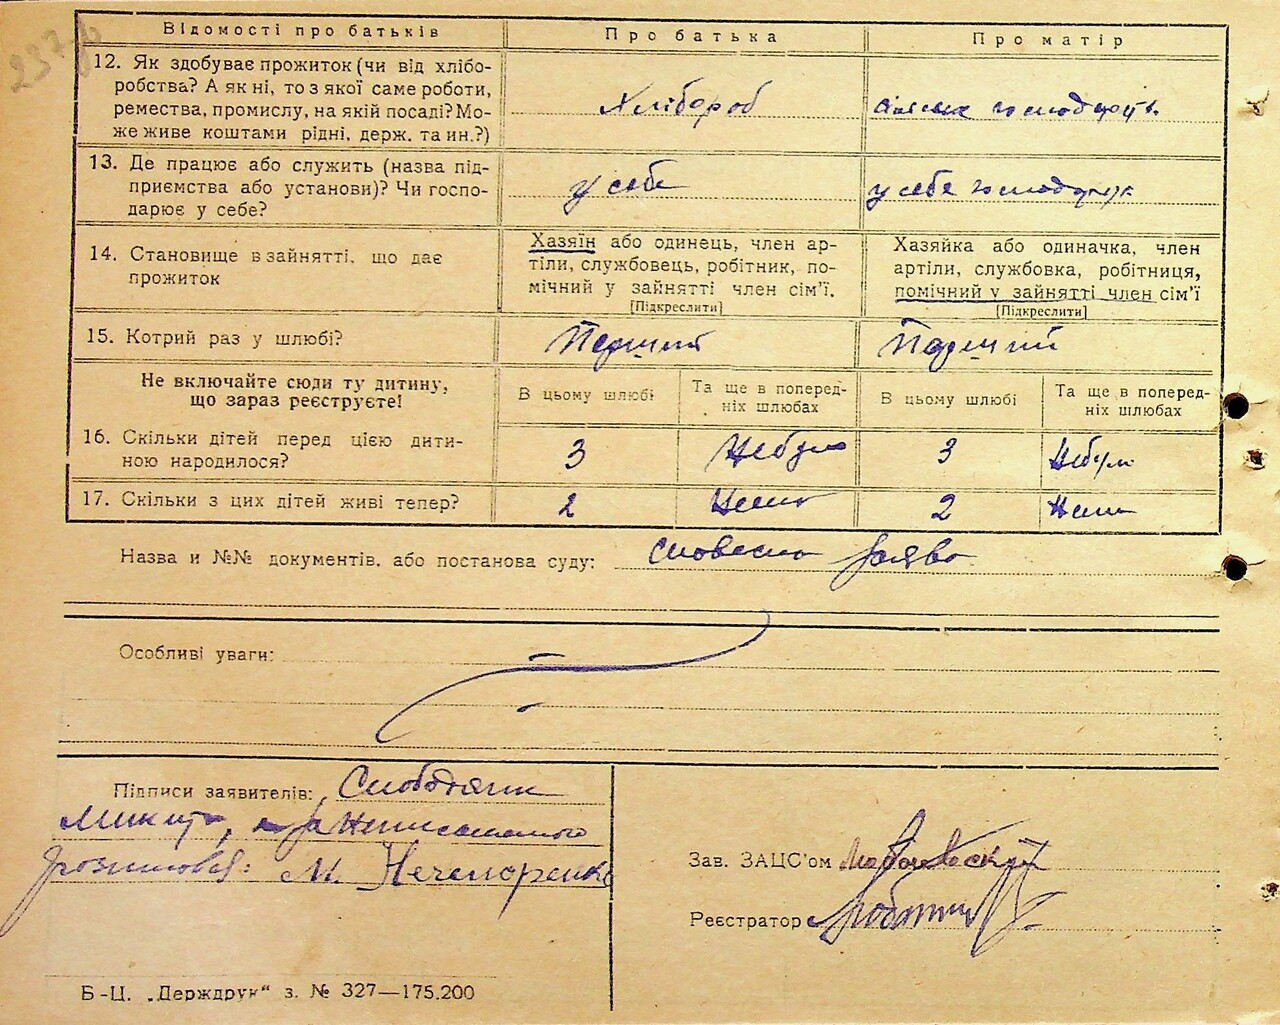 Відомості про батьків Про батька Про матір
12. Як здобуває прожиток (чи від хлібо-
робства? А як ні, то з якої саме роботи,
ремества, промислу, на якій посаді? Мо-
же живе коштами рідні, держ. та ин.?)
Хлібороб
13. Де працює або служить (назва під-
приємства або установи)? Чи госпо-
дарює у себе?
у себе
у себе
14. Становище в зайнятті, що дає
прожиток
Хазяїн або одинець, член ар-
тіли, службовець, робітник, по-
мічний у зайнятті член сім'ї.
[Підкреслити]
Хазяйка або одиначка, член
артіли, службовка, робітниця,
помічний у зайнятті член сім'ї
[Підкреслити]
15. Котрий раз у шлюбі? Перший Перший
Не включайте сюди ту дитину,
що зараз реєструєте!
В цьому шлюбі
Та ще в поперед-
ніх шлюбах
В цьому шлюбі
Та ще в поперед-
ніх шлюбах
16. Скільки дітей перед цією дити-
ною народилося?
3 Небуло 3 Небуло
17. Скільки з цих дітей живі тепер? 2 Нема 2 Нема
Назва и №№ документів, або постанова суду: Словесна заява
Особливі уваги:
Підписи заявителів: Слободяник
Микита, за неписьменого
розписався: М. Нечепоренко
Зав. ЗАЦС'ом
Реєстратор
Б-Ц. „Держдрук“ з. № 327—175.200